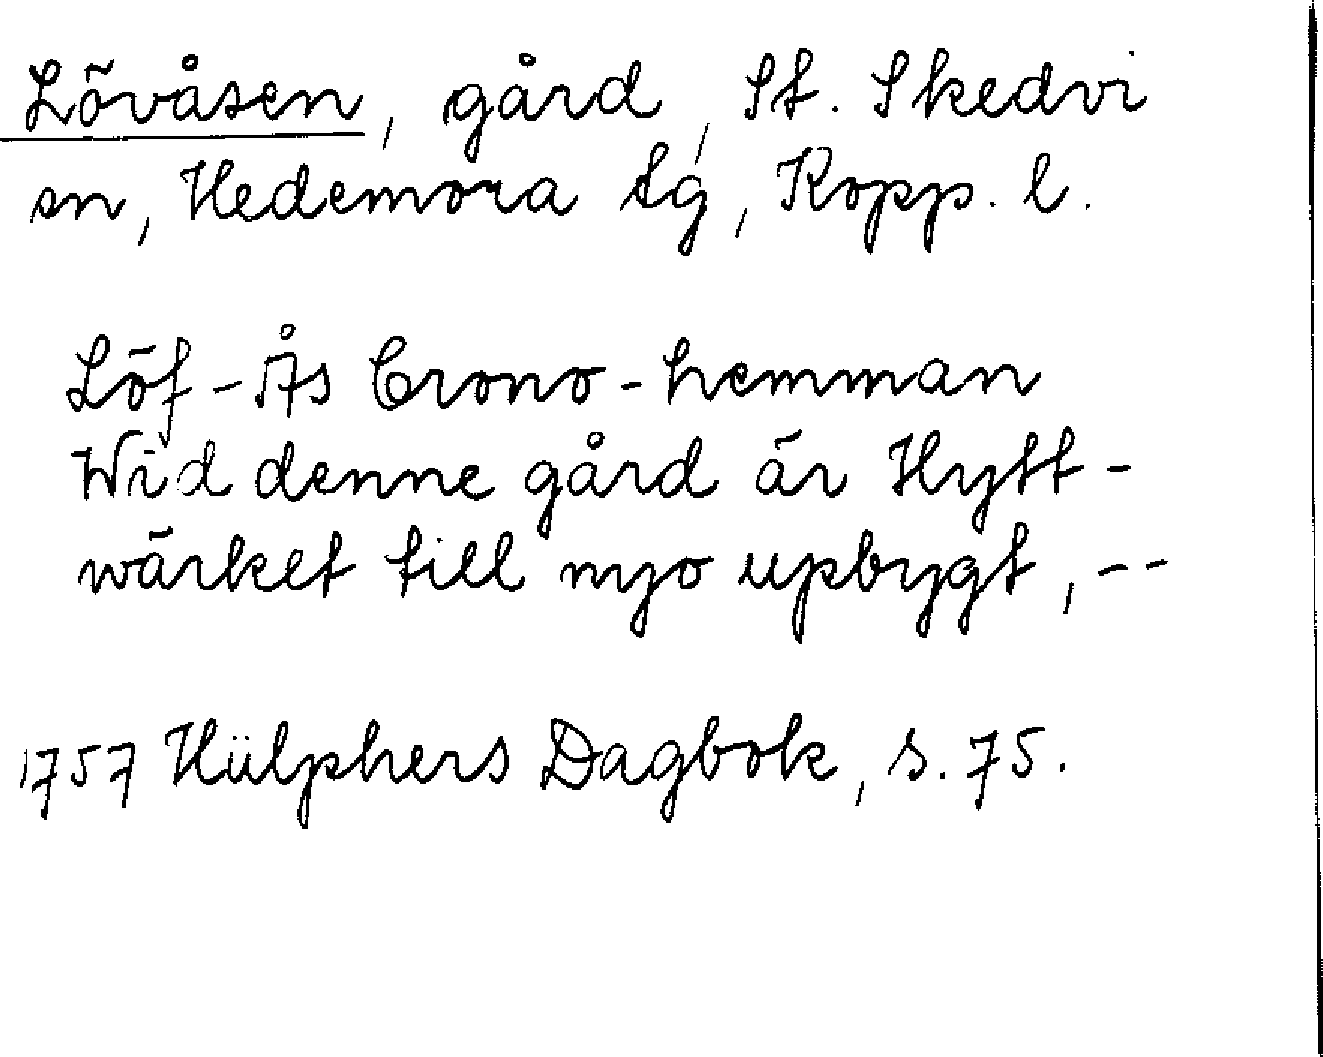 Lövåsen, gård, St. Skedvi
sn, Hedemora tg, Kopp. l.
Löf-Ås Crono-hemman
Wid denne gård är Hytt-
wärket till nyo upbygt, --
1757 Hülphers Dagbok, s. 75.